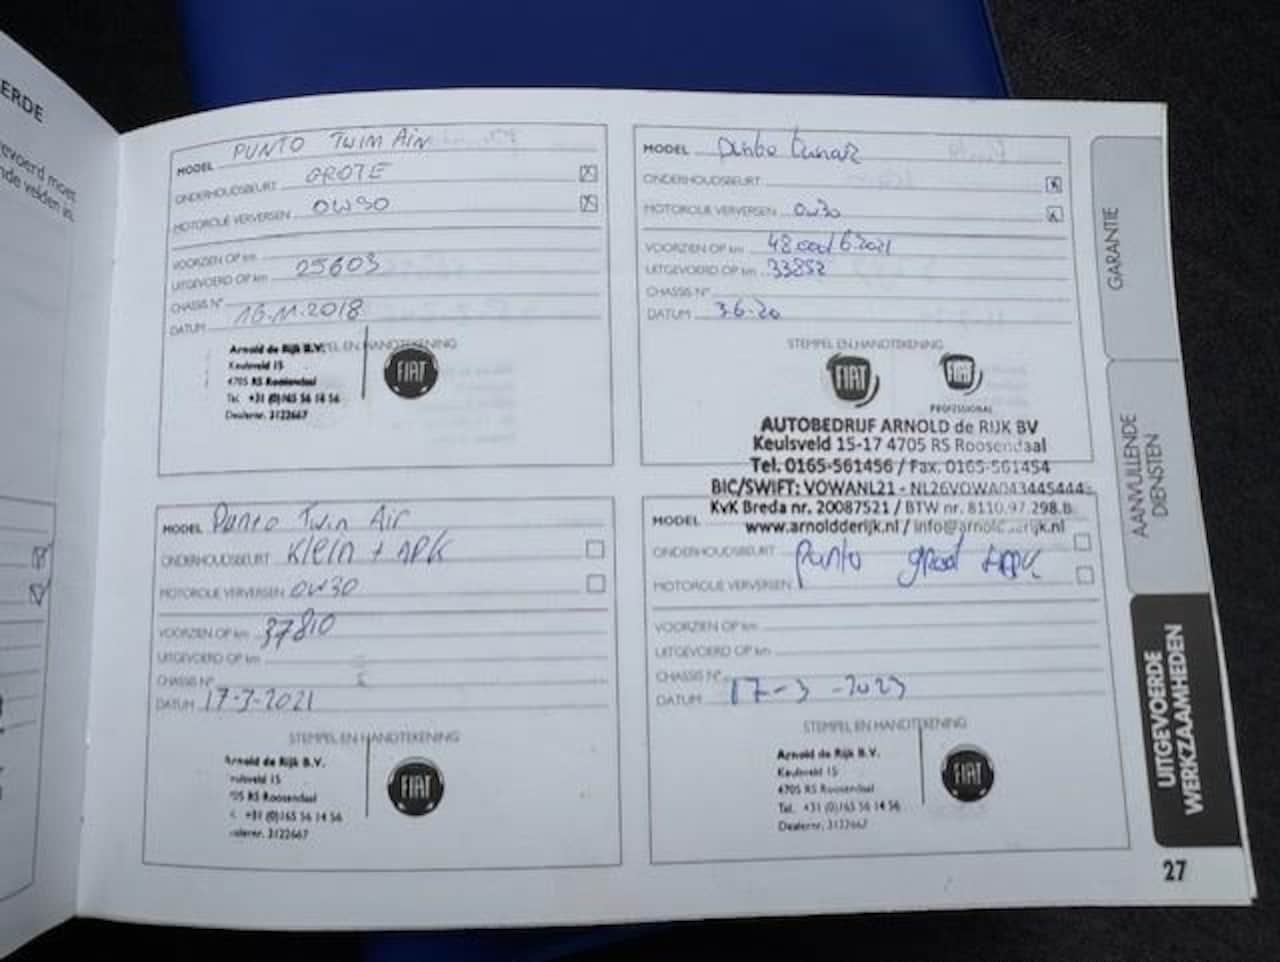 ERDE
evoerd moet
nde velden in.
MODEL PUNTO TWIN AIR
ONDERHOUDSBEURT GROTE
MOTOROLIE VERVERSEN 0W30
VOORZIEN OP km
UITGEVOERD OP km 25603
CHASSIS N°
DATUM 16.11.2018
STEMPEL EN HANDTEKENING
Arnold de Rijk B.V.
Keulsveld 15
4705 RS Roosendaal
Tel. +31 (0)165 56 14 56
Dealernr. 3122667
FIAT
MODEL Punto
ONDERHOUDSBEURT
MOTOROLIE VERVERSEN 0w30
VOORZIEN OP km 48000/6 2021
UITGEVOERD OP km 33852
CHASSIS N°
DATUM 3-6-20
STEMPEL EN HANDTEKENING
FIAT FIAT
PROFESSIONAL
AUTOBEDRIJF ARNOLD de RIJK BV
Keulsveld 15-17 4705 RS Roosendaal
Tel. 0165-561456 / Fax. 0165-561454
BIC/SWIFT: VOWANL21 - NL26VOWA0433445444
KvK Breda nr. 20087521 / BTW nr. 8110.97.298.B.
www.arnoldderijk.nl / info@arnoldderijk.nl
MODEL Punto Twin Air
ONDERHOUDSBEURT Klein + APK
MOTOROLIE VERVERSEN 0W30
VOORZIEN OP km 37810
UITGEVOERD OP km
CHASSIS N°
DATUM 17-3-2021
STEMPEL EN HANDTEKENING
Arnold de Rijk B.V.
Keulsveld 15
05 RS Roosendaal
+31 (0)165 56 14 56
alernr. 3122667
FIAT
MODEL
ONDERHOUDSBEURT Punto groot + APK
MOTOROLIE VERVERSEN
VOORZIEN OP km
UITGEVOERD OP km
CHASSIS N°
DATUM 17-3-2023
STEMPEL EN HANDTEKENING
Arnold de Rijk B.V.
Keulsveld 15
4705 RS Roosendaal
Tel. +31 (0)165 56 14 56
Dealernr. 3122667
FIAT
GARANTIE
AANVULLENDE
DIENSTEN
UITGEVOERDE
WERKZAAMHEDEN
27